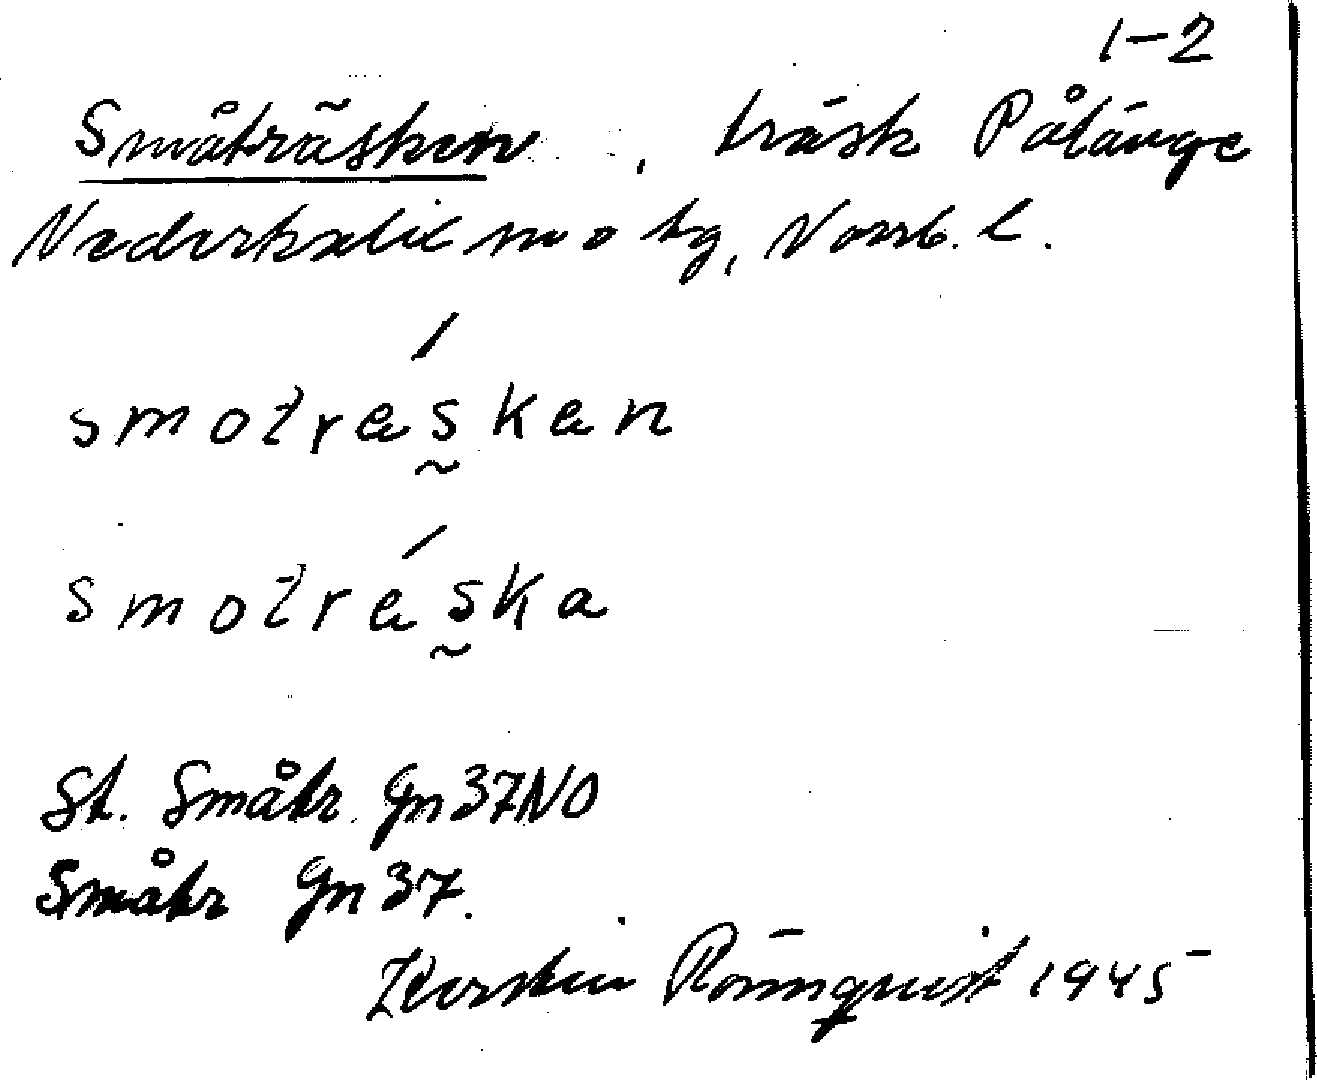 1-2
Småträsken, träsk Pålänge
Nederkalix sn o tg, Norrb. l.
smotræskan
smotræska
St. Småtr. Gn 37NO
Småtr Gn 37.
Kerstin Rönnquist 1945